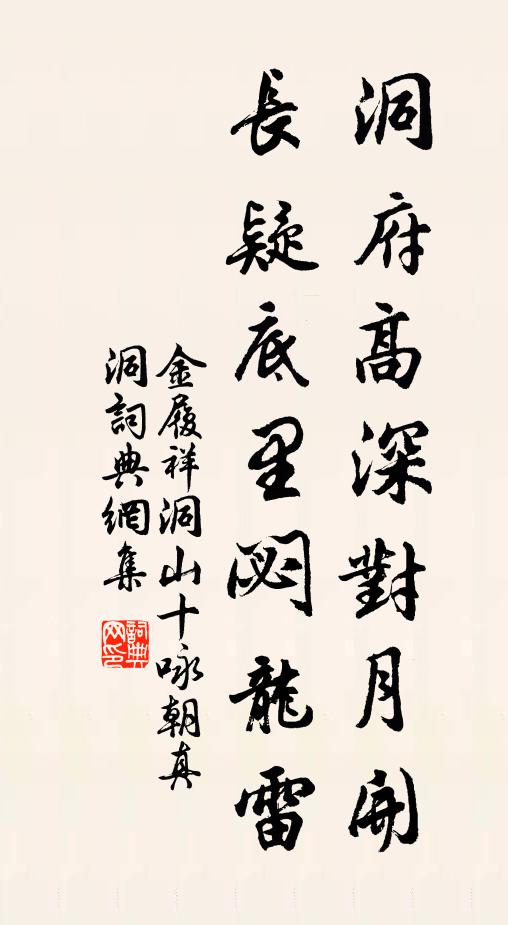 洞府高深對月開
長疑底里閟龍雷
金履祥洞山十咏朝真
洞詞典網集
詞典網印